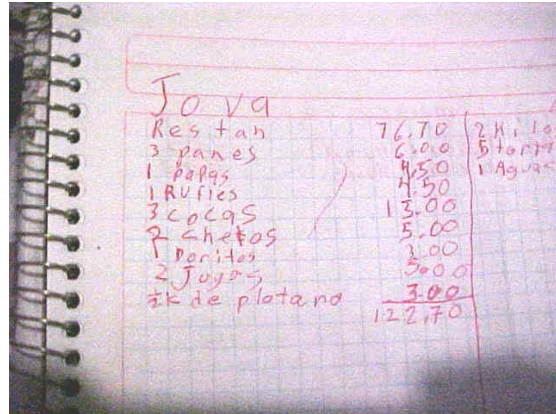 Jova
Restan 76.70
3 panes 6.00
1 papas 4.50
1 Rufles 4.50
3 cocas 15.00
2 chetos 5.00
1 Doritos 3.00
2 Jugos 5.00
½K de platano 3.00
122.70
2 Kilo
5 torta
1 Aguas